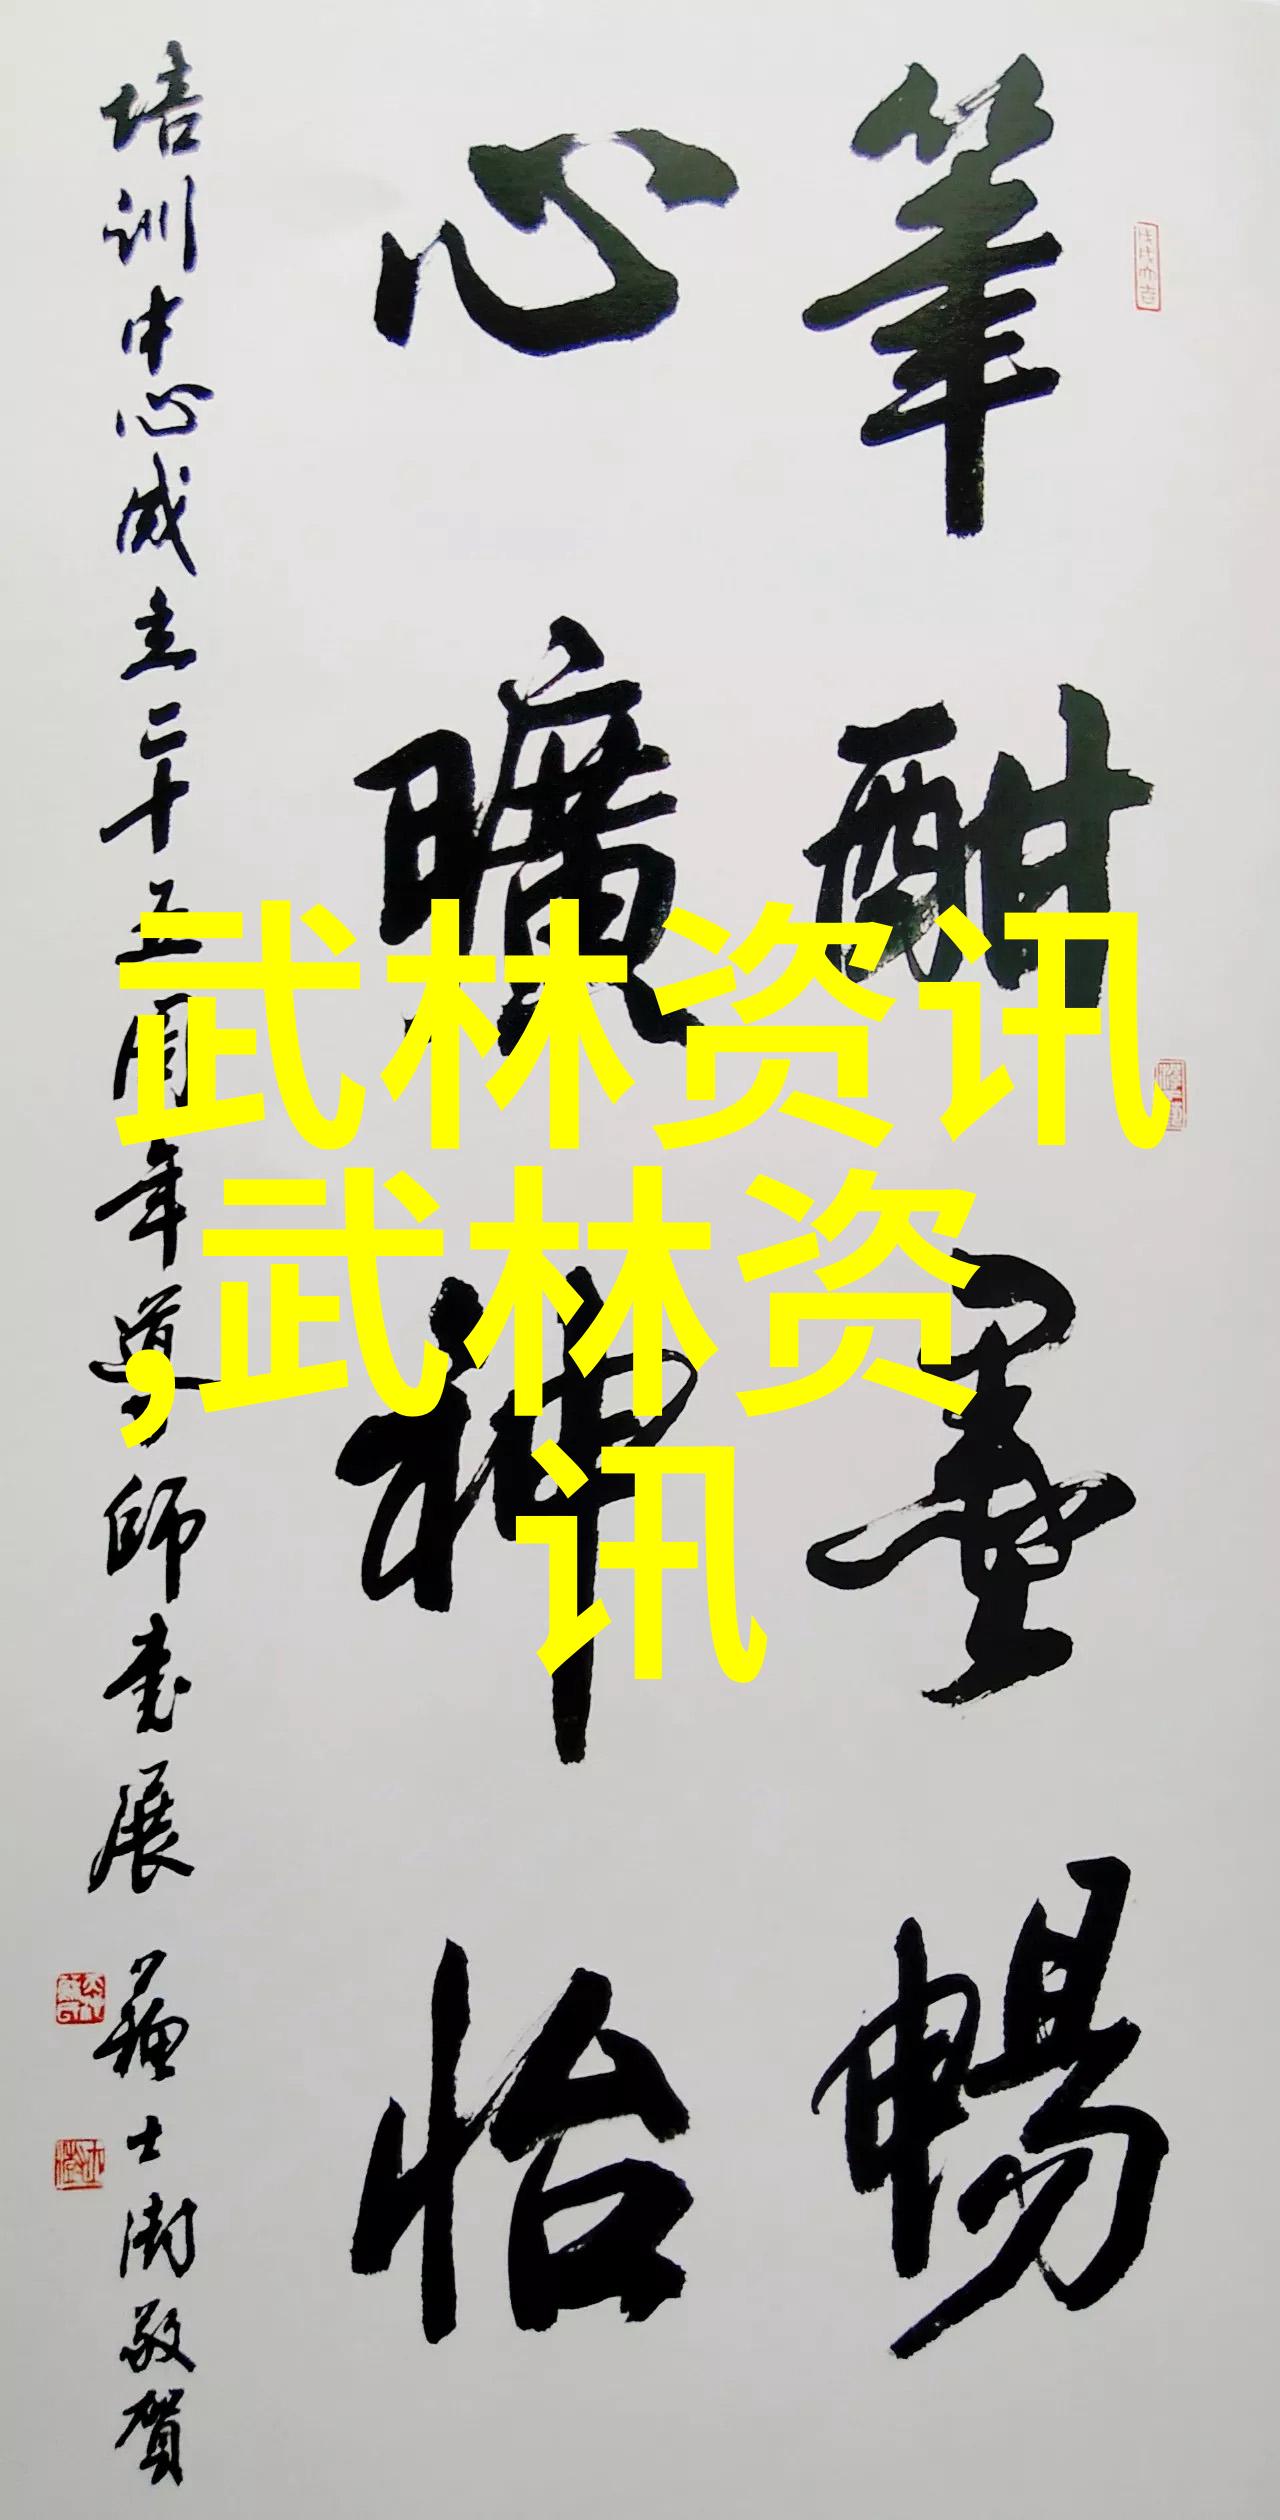 筆酣墨暢
心曠神怡
培训中心成立二十五周年導師書展 蘇士澍敬賀
武林资讯
,武林资
讯